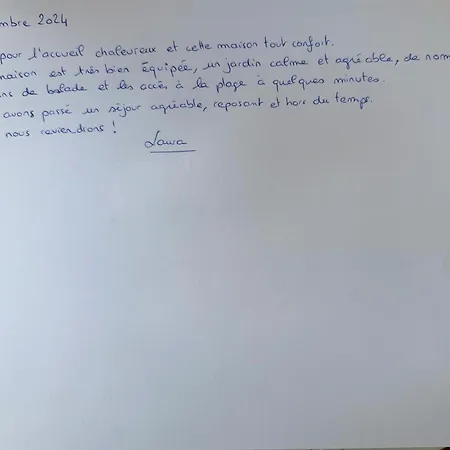 mbre 2024
pour l'accueil chaleureux et cette maison tout confort.
maison est très bien équipée, un jardin calme et agréable, de nom
ns de balade et les accès à la plage à quelques minutes.
avons passé un séjour agréable, reposant et hors du temps.
nous reviendrons !
Laura